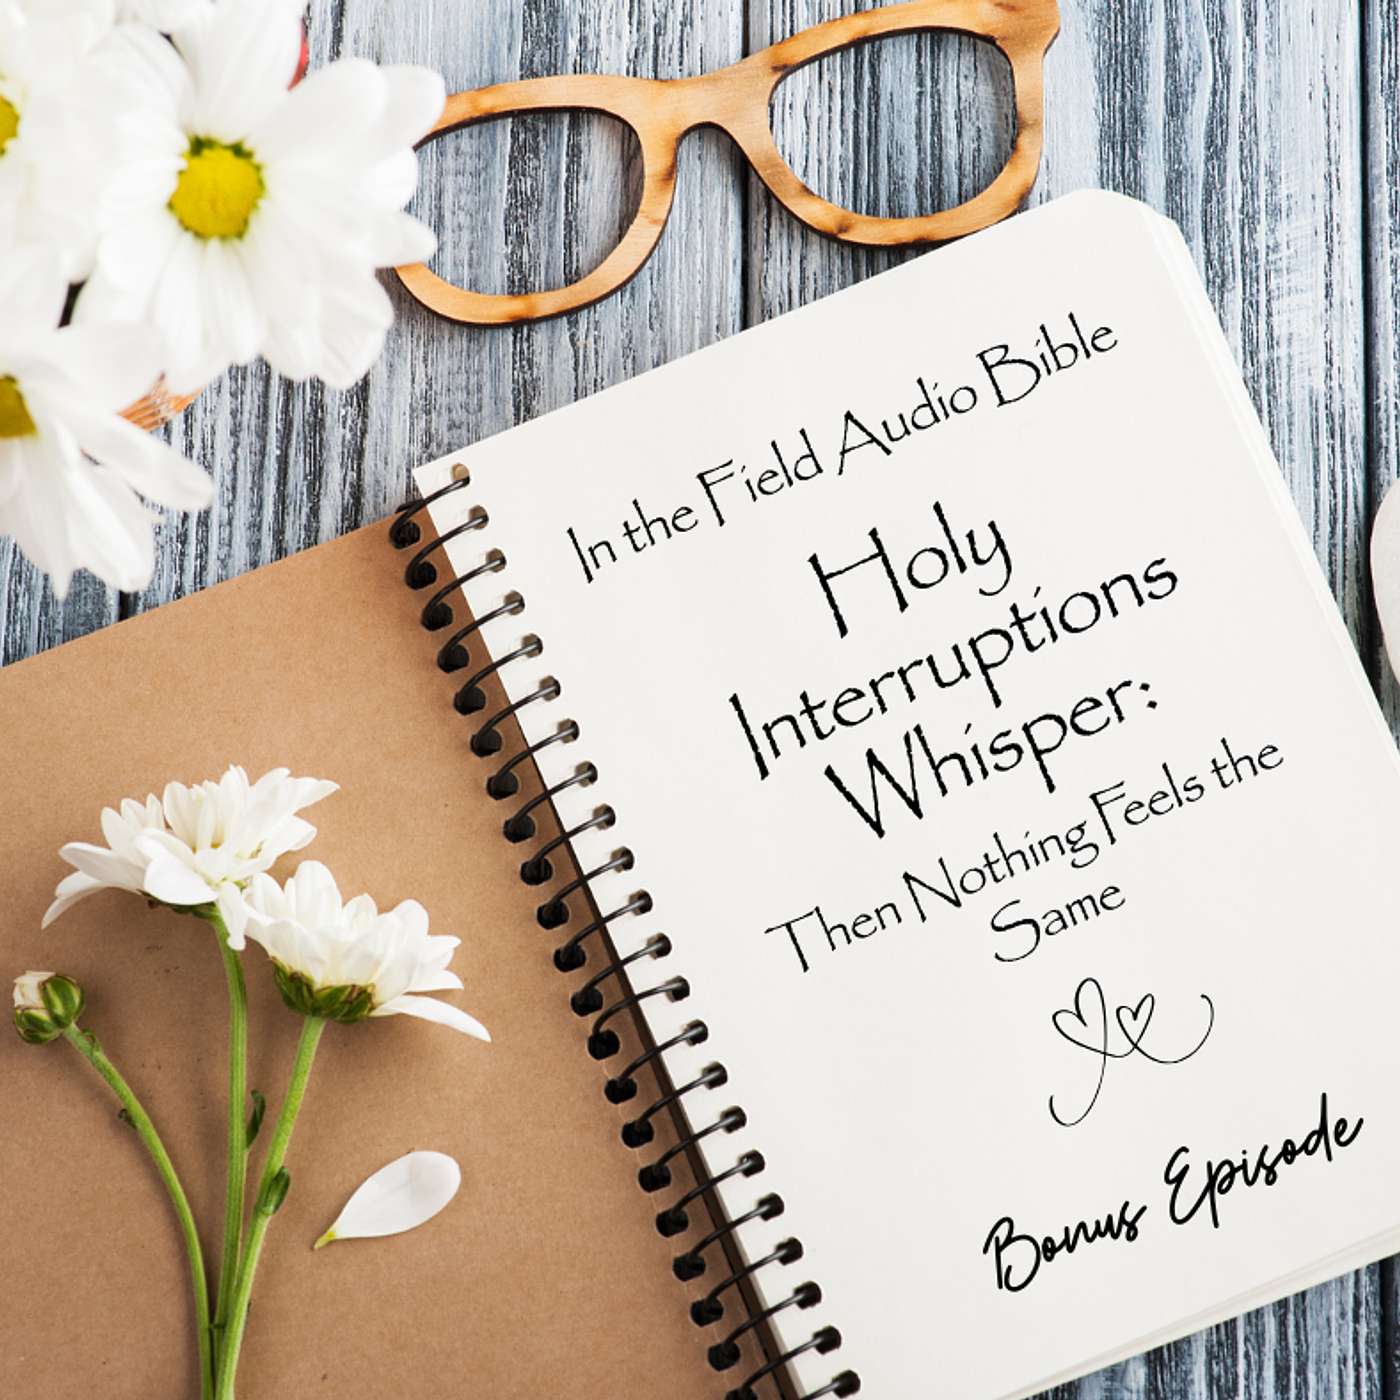 In the Field Audio Bible
Holy
Interruptions
Whisper:
Then Nothing Feels the
Same
Bonus Episode